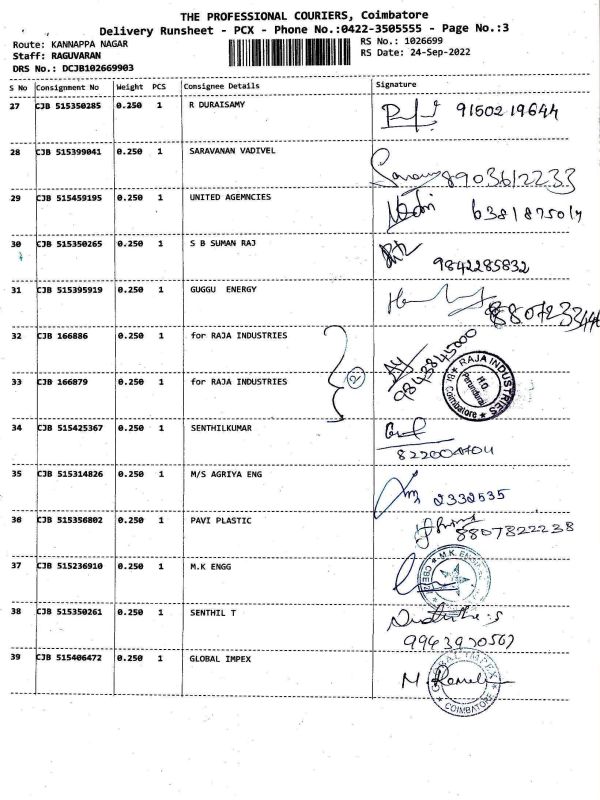 THE PROFESSIONAL COURIERS, Coimbatore
Delivery Runsheet - PCX - Phone No.:0422-3505555 - Page No.:3
Route: KANNAPPA NAGAR
RS No.: 1026699
Staff: RAGUVARAN
RS Date: 24-Sep-2022
DRS No.: DCJB102669903
S No Consignment No Weight PCS Consignee Details Signature
27 CJB 515350285 0.250 1 R DURAISAMY 9150219644
28 CJB 515399041 0.250 1 SARAVANAN VADIVEL 8903612233
29 CJB 515459195 0.250 1 UNITED AGEMNCIES
30 CJB 515350265 0.250 1 S B SUMAN RAJ 9842285832
31 CJB 515395919 0.250 1 GUGGU ENERGY
32 CJB 166886 0.250 1 for RAJA INDUSTRIES 9843845000
33 CJB 166879 0.250 1 for RAJA INDUSTRIES 2
RAJA INDUSTRIES
H.O. Perundurai
Coimbatore
34 CJB 515425367 0.250 1 SENTHILKUMAR
35 CJB 515314826 0.250 1 M/S AGRIYA ENG 2332535
36 CJB 515356802 0.250 1 PAVI PLASTIC 8807822238
37 CJB 515236910 0.250 1 M.K ENGG
38 CJB 515350261 0.250 1 SENTHIL T
39 CJB 515406472 0.250 1 GLOBAL IMPEX
GLOBAL IMPEX
COIMBATORE